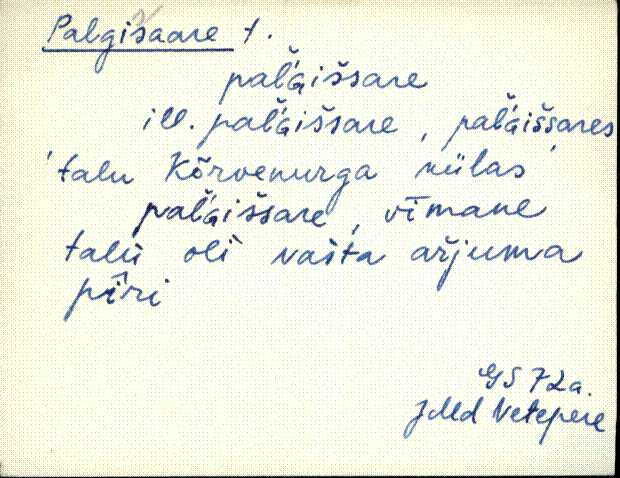 Palgisaare t.
palǵišsare
ill. palǵišsare, palǵišsares
'talu Kõrvenurga külas
palǵišsare, vīmane
talu oli vašta ařjuma
pīri
ES 72a.
JMd Vetepere